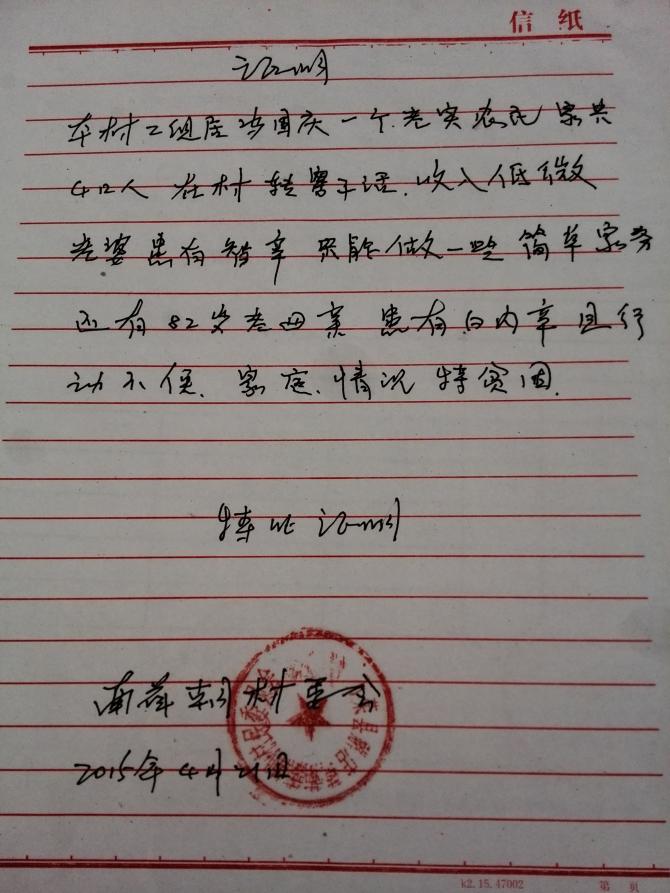 信 纸
证明
本村二组居 国庆一个老实农民 家共
4口人 在村 转 干活.收入低微
老婆患有智辛 只能做一些简单家务
还有82岁老母亲 患有白内辛且行
动不便.家庭.情况特贫困.
特此证明
南 朝村委会
2015年4月21日
k2.15.47002 第 页